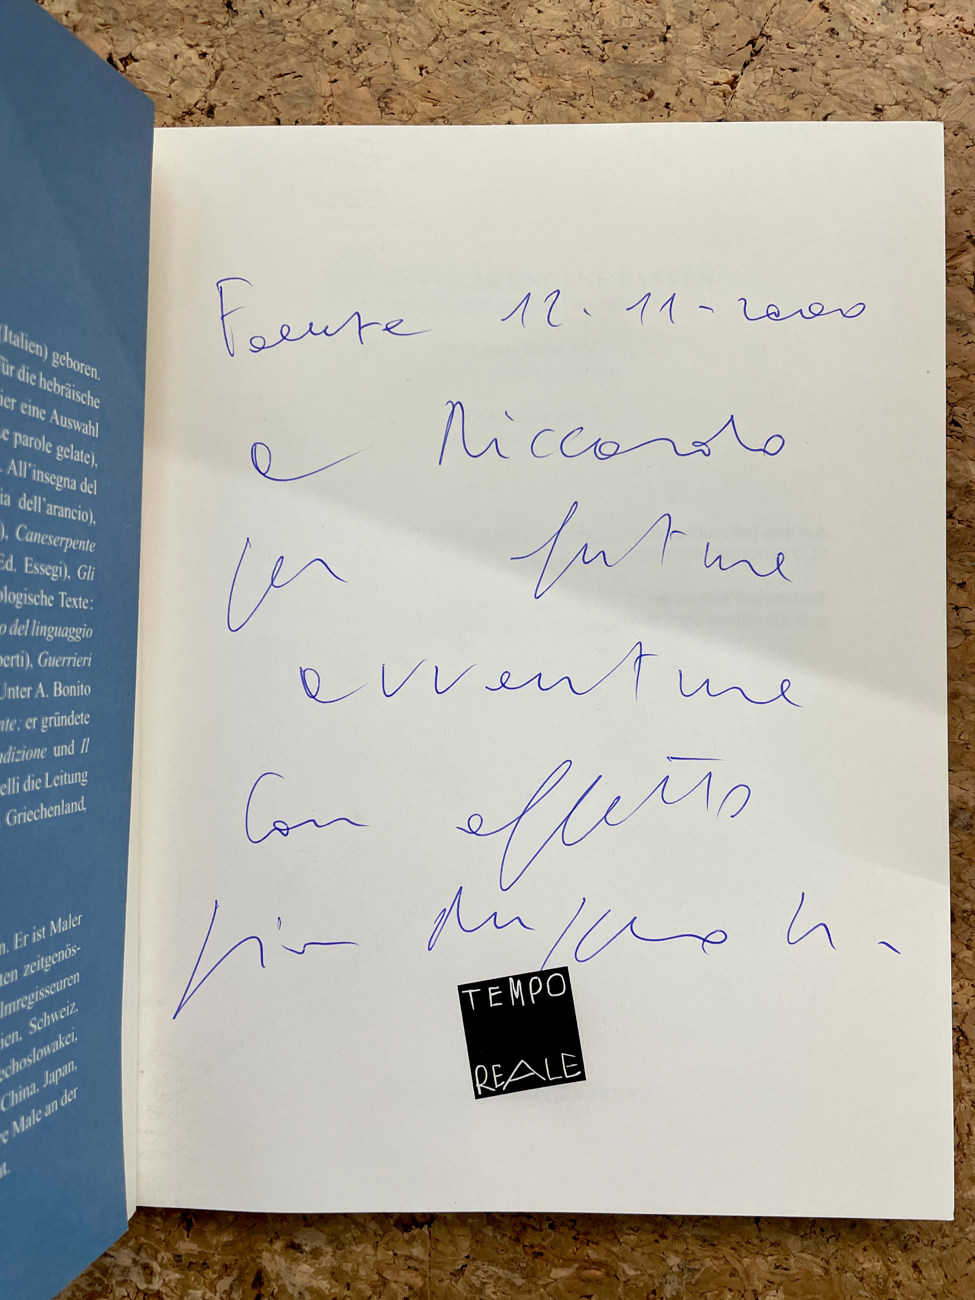 (Italien) geboren.
für die hebräische
ier eine Auswahl
e parole gelate),
. All'insegna del
ia dell'arancio),
), Caneserpente
Ed. Essegi), Gli
ologische Texte:
o del linguaggio
perti), Guerrieri
Unter A. Bonito
nte; er gründete
adizione und Il
elli die Leitung
Griechenland,
n. Er ist Maler
ten zeitgenös-
lmregisseuren
ien, Schweiz,
echoslowakei,
China, Japan,
e Male an der
t.
Faenza 12.11-2000
a Riccardo
per future
avventure
con affetto
Gian Ruggero M.
TEMPO
REALE